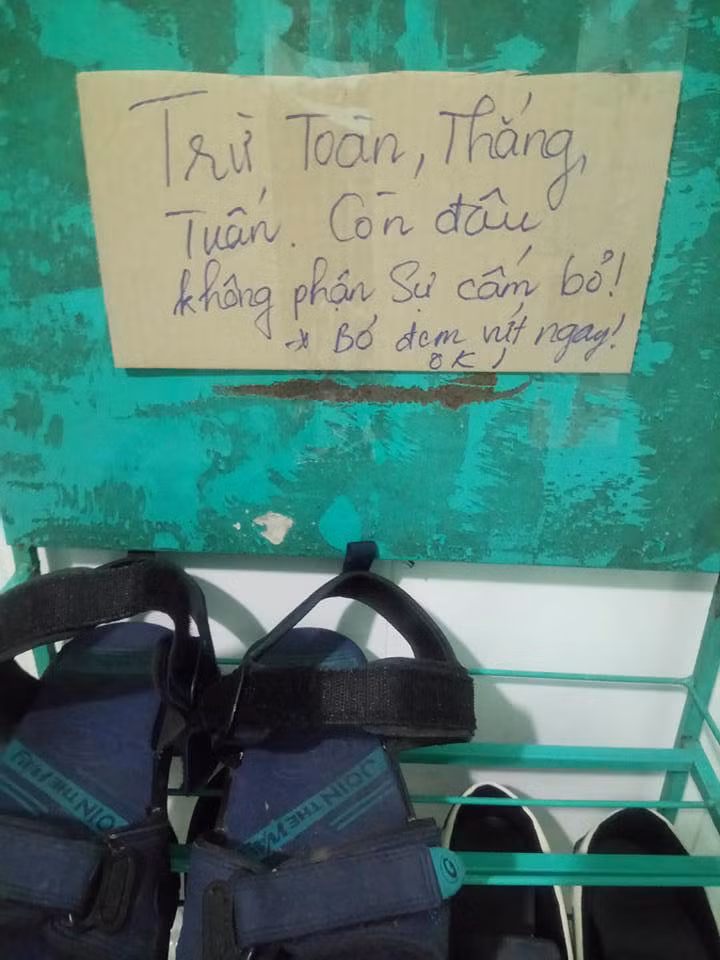 Trừ Toàn, Thắng,
Tuấn. Còn đâu
không phận Sự cấm bỏ!
→ Bỏ đem vứt ngay!
OK,
JOIN THE WAY
JOIN THE WAY